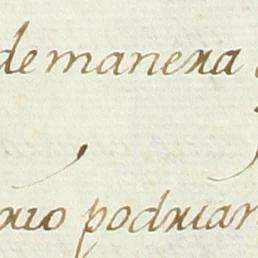 de manera
podrian